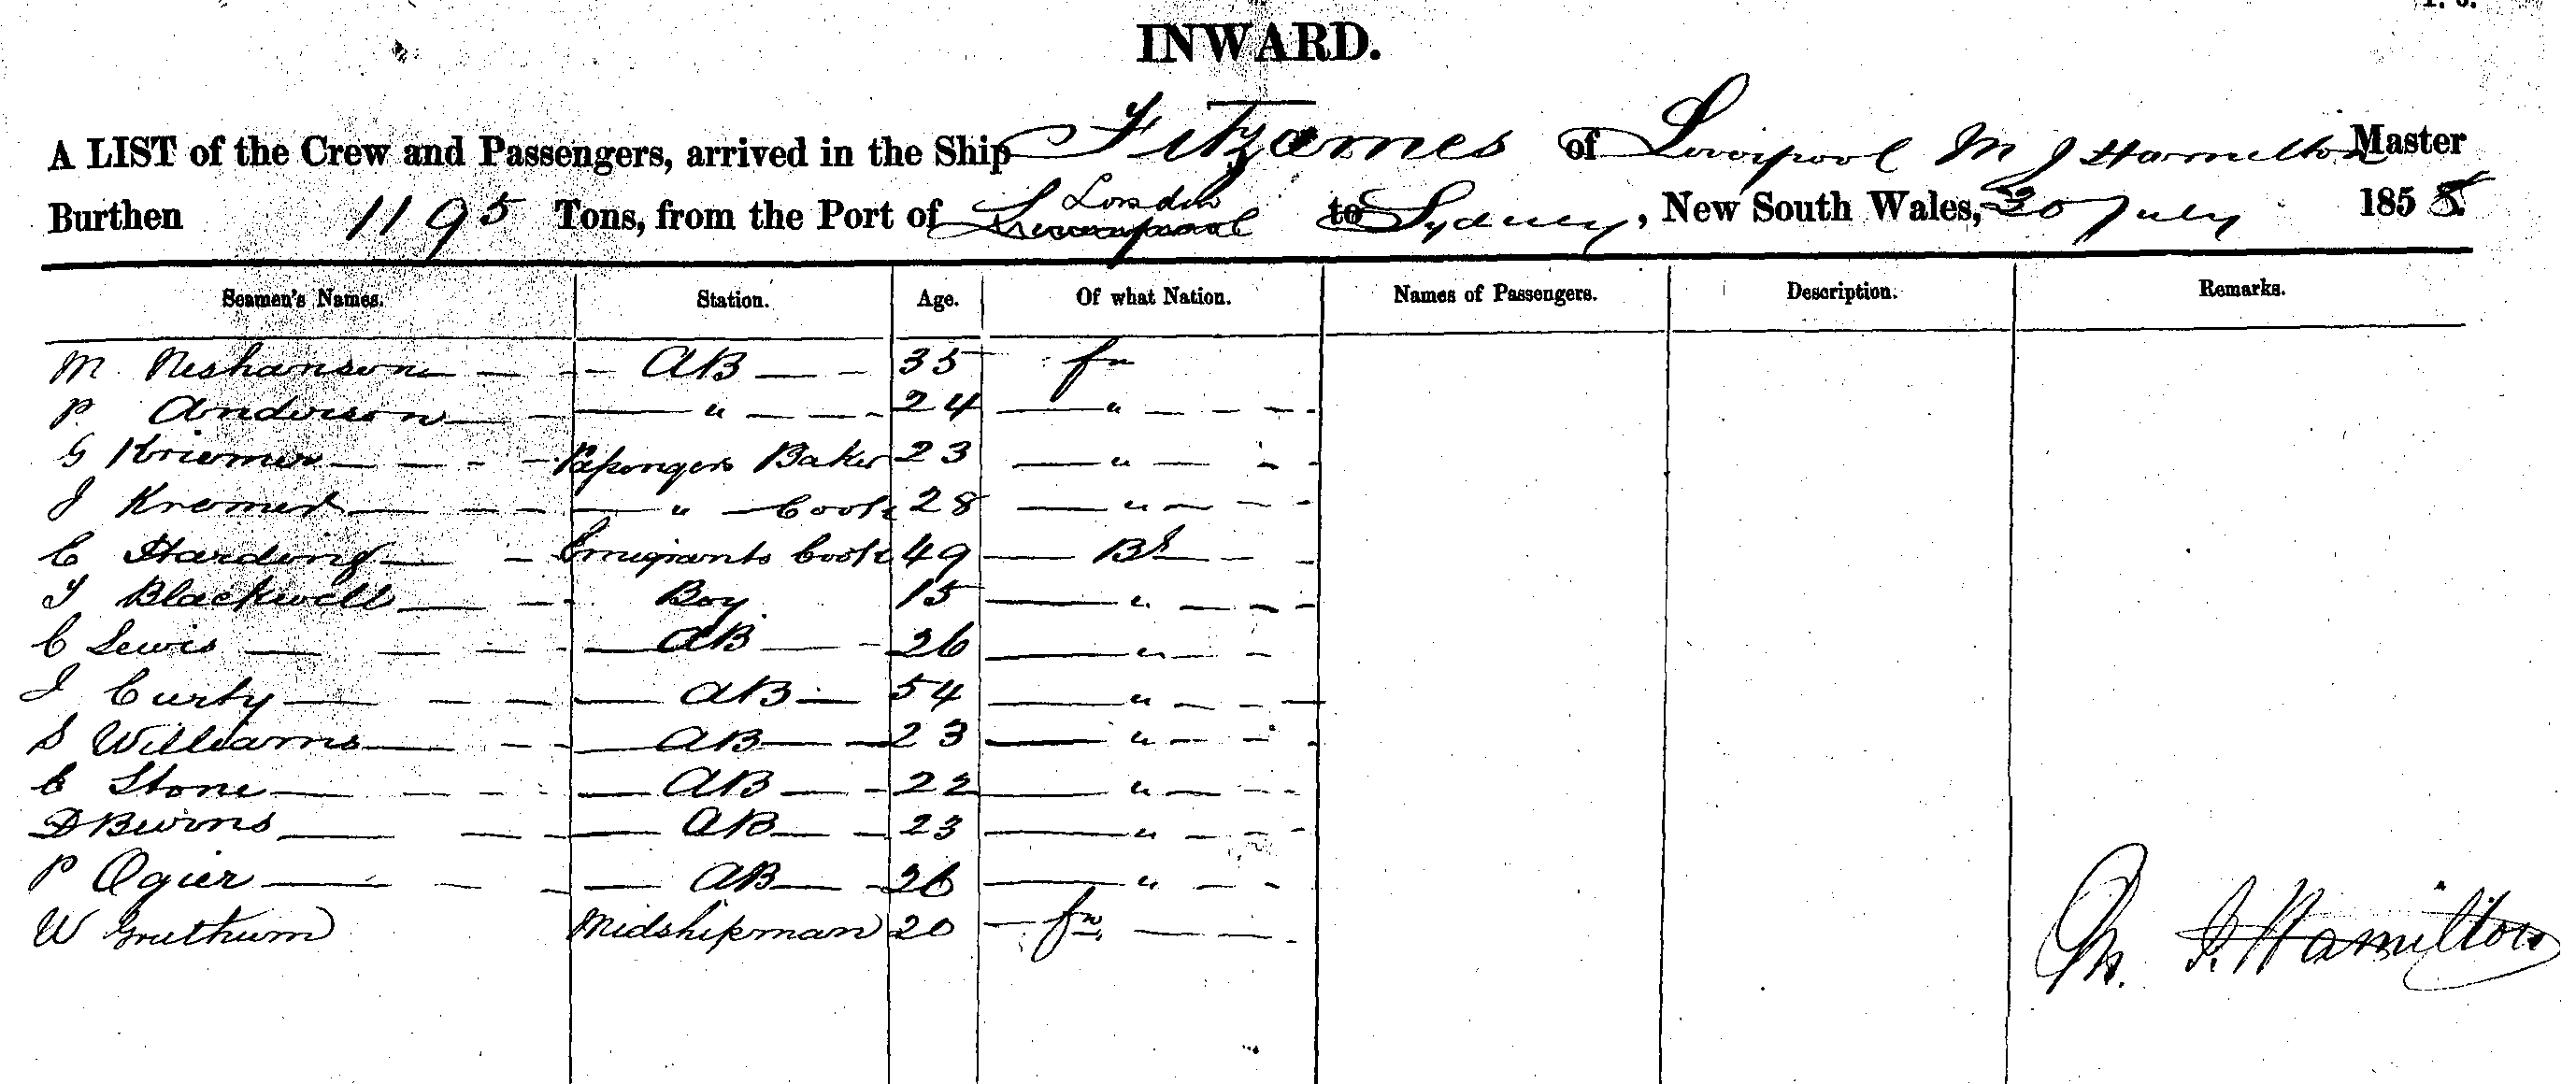 INWARD.
A LIST of the Crew and Passengers, arrived in the Ship Fitzjames of Liverpool M J Hamilton Master
Burthen 1195 Tons, from the Port of London to Sydney, New South Wales, 20 July 1858.
Seamen's Names. Station. Age. Of what Nation. Names of Passengers. Description. Remarks.
M Neshanson AB 35 fn
P. Anderson " 24 "
G Kriemer Passengers Baker 23 "
J Kremer " Cook 28 "
C Harding Emigrants Cook 49 Br
J Blackwell Boy 15 "
C Lewis AB 26 "
J Curty AB 54 "
S Williams AB 23 "
C Stone AB 22 "
D Burns AB 23 "
P Ogier AB 26 "
W Midshipman 20 fn
M. J. Hamilton